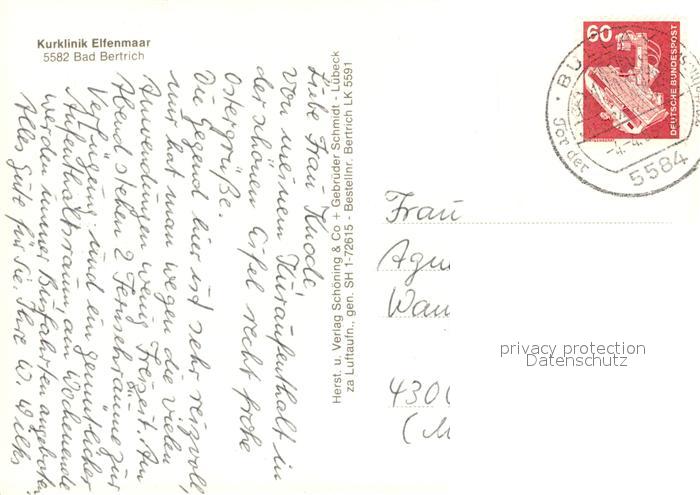 Kurklinik Elfenmaar
5582 Bad Bertrich
Liebe Frau Knode,
von meinem Kuraufenthalt in
der schönen Eifel recht frohe
Ostergrüße.
Die Gegend hier ist sehr reizvoll,
nur hat man wegen die vielen
Anwendungen wenig Freizeit. Am
Abend stehen 2 Fernsehräume zur
Verfügung und ein gemütlicher
Aufenthaltsraum, am Wochenende
werden immer Busfahrten angeboten.
Alles Gute für Sie. Ihre W.
Herst. u. Verlag Schöning & Co + Gebrüder Schmidt - Lübeck
za Luftaufn., gen. SH 1-72615 - Bestellnr. Bertrich LK 5591
60
DEUTSCHE BUNDESPOST
5584
Frau
Agn
Wan
430
(M
privacy protection
Datenschutz